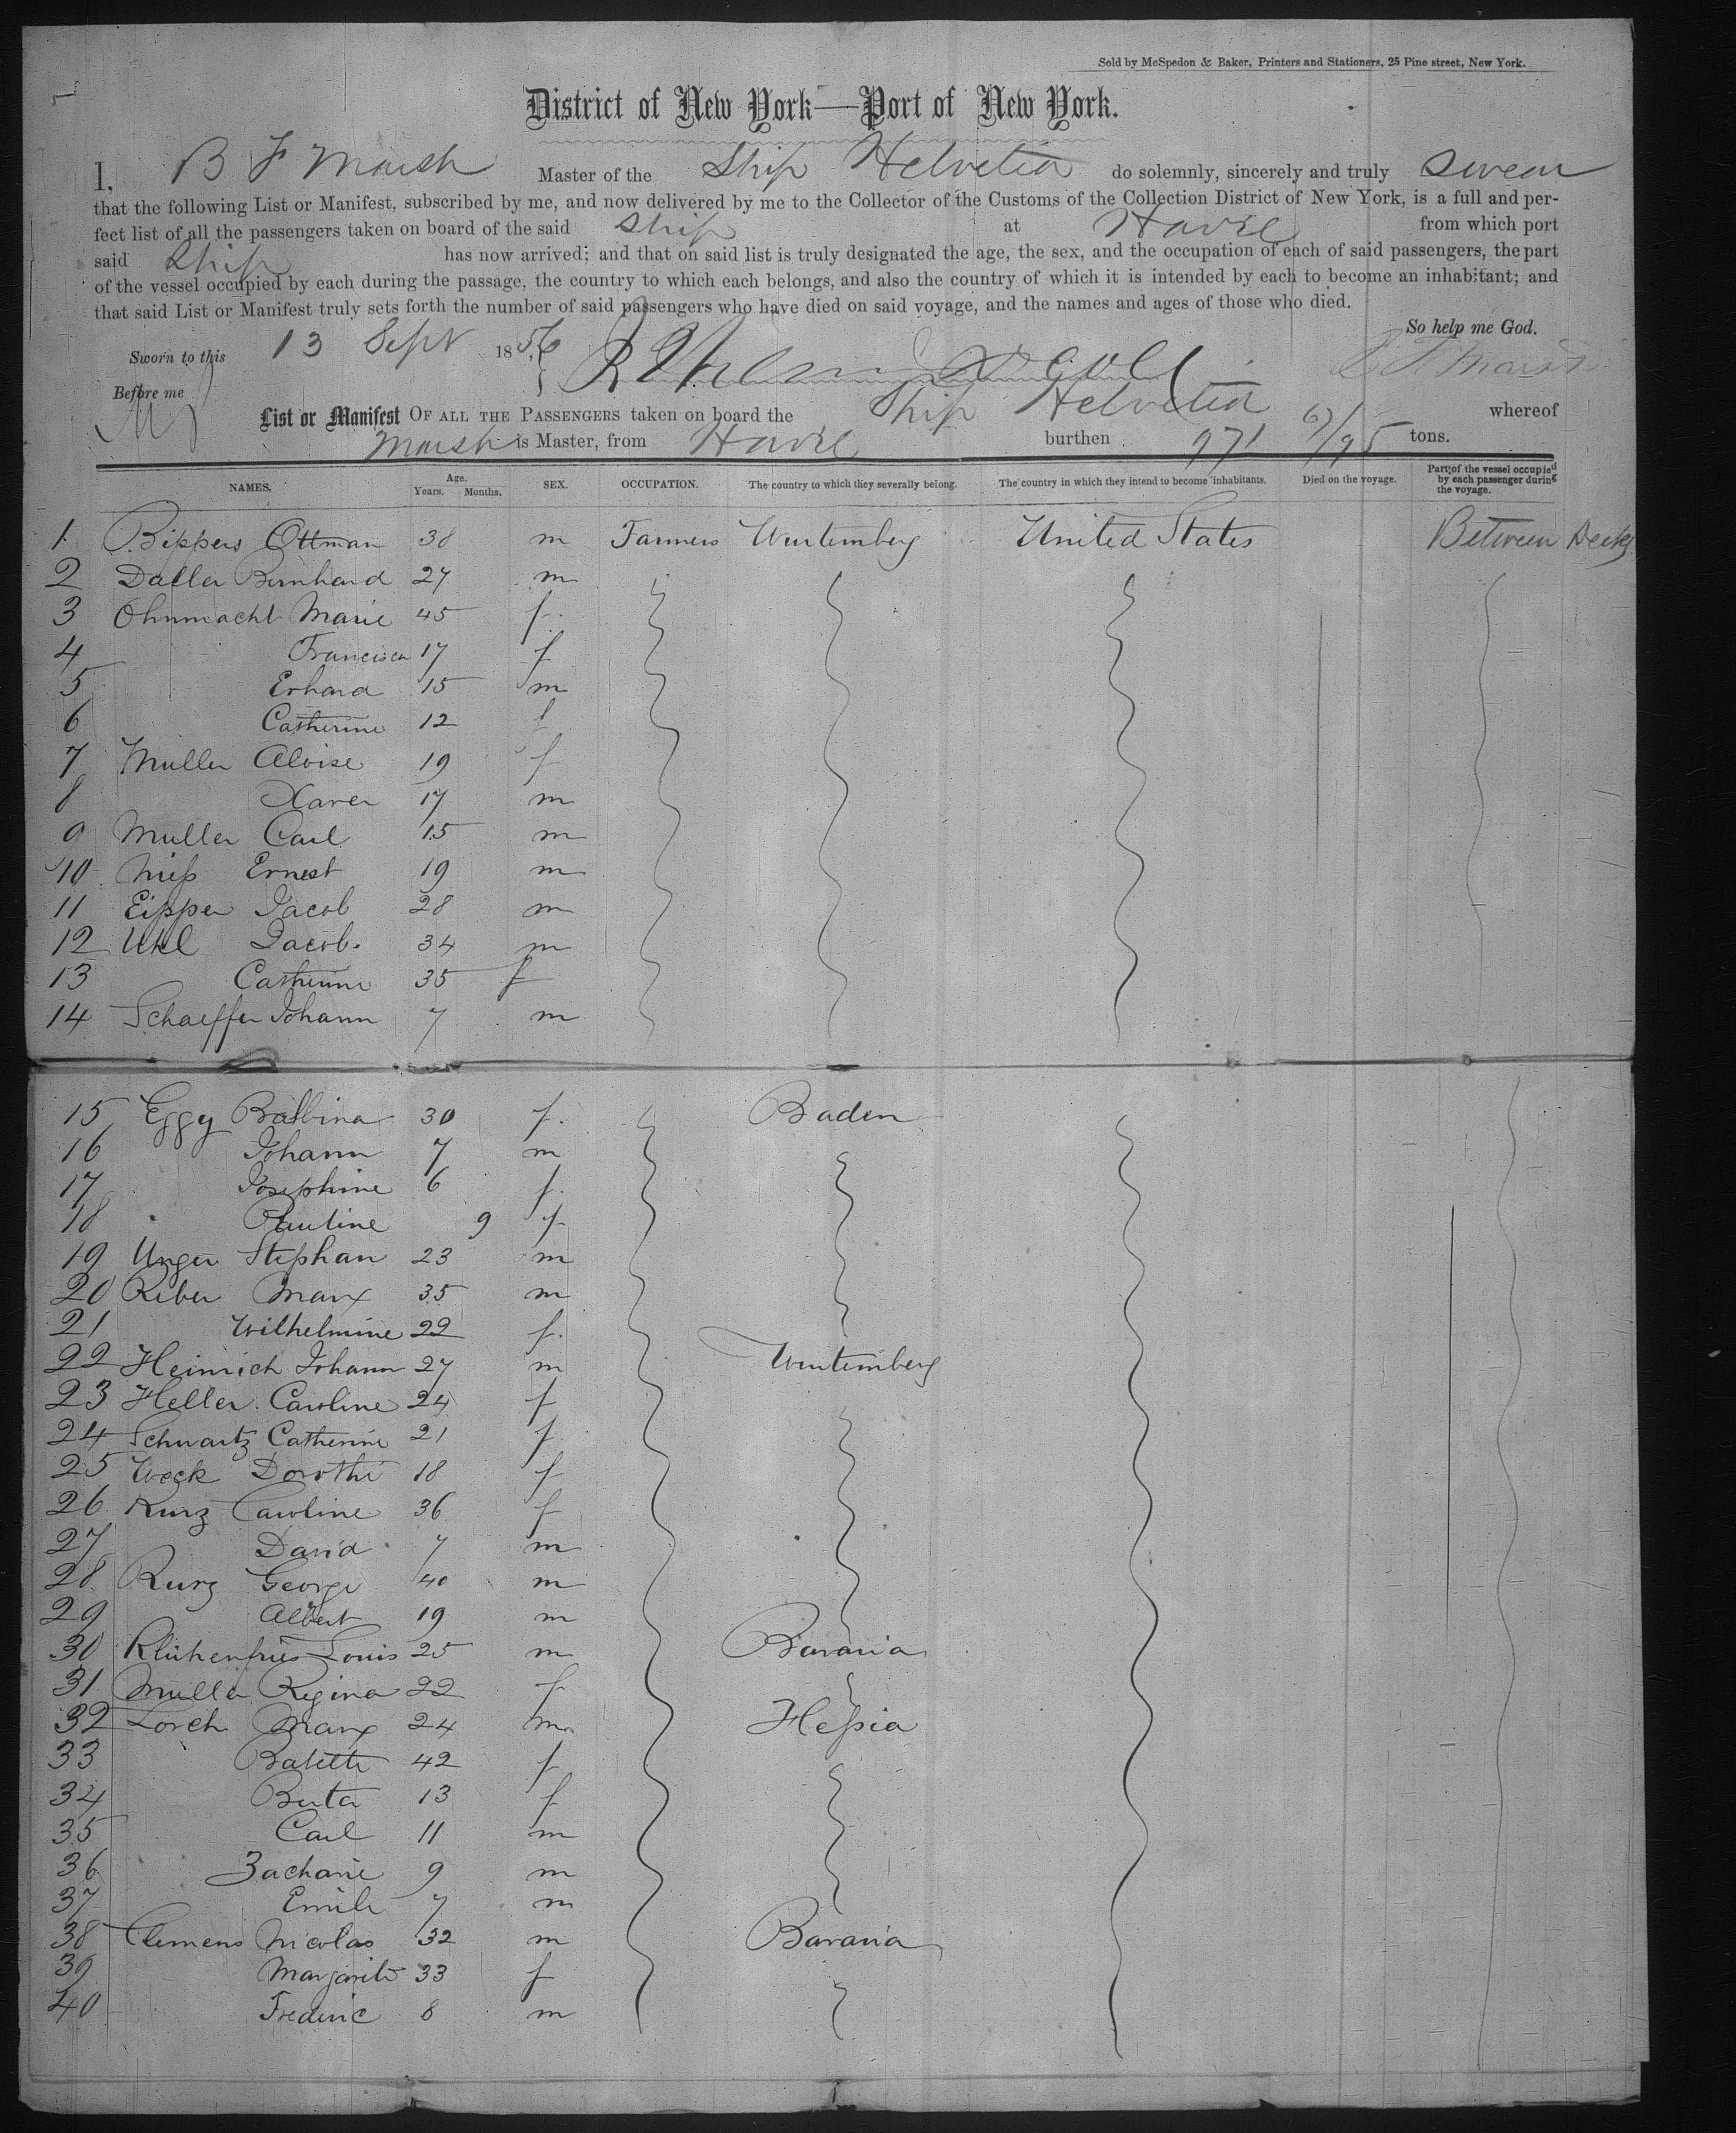 Sold by McSpedon & Baker, Printers and Stationers, 25 Pine street, New York.
District of New York—Port of New York.
I, B F Marsh Master of the Ship Helvetia do solemnly, sincerely and truly swear
that the following List or Manifest, subscribed by me, and now delivered by me to the Collector of the Customs of the Collection District of New York, is a full and per-
fect list of all the passengers taken on board of the said Ship at Havre from which port
said Ship has now arrived; and that on said list is truly designated the age, the sex, and the occupation of each of said passengers, the part
of the vessel occupied by each during the passage, the country to which each belongs, and also the country of which it is intended by each to become an inhabitant; and
that said List or Manifest truly sets forth the number of said passengers who have died on said voyage, and the names and ages of those who died.
So help me God.
Sworn to this 13 Sept 1856
Before me
List or Manifest OF ALL THE PASSENGERS taken on board the Ship Helvetia whereof
Marsh is Master, from Havre burthen 971 67/95 tons.
NAMES. Age. Years. Months. SEX. OCCUPATION. The country to which they severally belong. The country in which they intend to become inhabitants. Died on the voyage. Part of the vessel occupied by each passenger during the voyage.
1 Bippers Ottman 38 m Farmers Wurtemberg United States Between Decks
2 Daller Bernhard 27 m
3 Ohnmacht Marie 45 f
4 Francisca 17 f
5 Erhard 15 m
6 Catherine 12 f
7 Muller Aloise 19 f
8 Xaver 17 m
9 Muller Carl 15 m
10 Niess Ernest 19 m
11 Eipper Jacob 28 m
12 Uhl Jacob 34 m
13 Catherine 35 f
14 Schaeffer Johann 7 m
15 Eggy Balbina 30 f. Baden
16 Johann 7 m
17 Josephine 6 f.
18 Pauline 9 f
19 Unger Stephan 23 m
20 Reber Marx 35 m
21 Wilhelmine 22 f.
22 Heinrich Johann 27 m Wurtemberg
23 Heller Caroline 24 f
24 Schwartz Catherine 21 f
25 Weck Dorothe 18 f
26 Kurz Caroline 36 f
27 David 7 m
28 Kurz George 40 m
29 Albert 19 m
30 Louis 25 m Bavaria
31 Muller Regina 22 f
32 Lorch Marx 24 m Hessia
33 Babette 42 f
34 Berta 13 f
35 Carl 11 m
36 Zacharie 9 m
37 Emile 7 m
38 Clemens Nicolas 32 m Bavaria
39 Margarite 33 f
40 Frederic 8 m